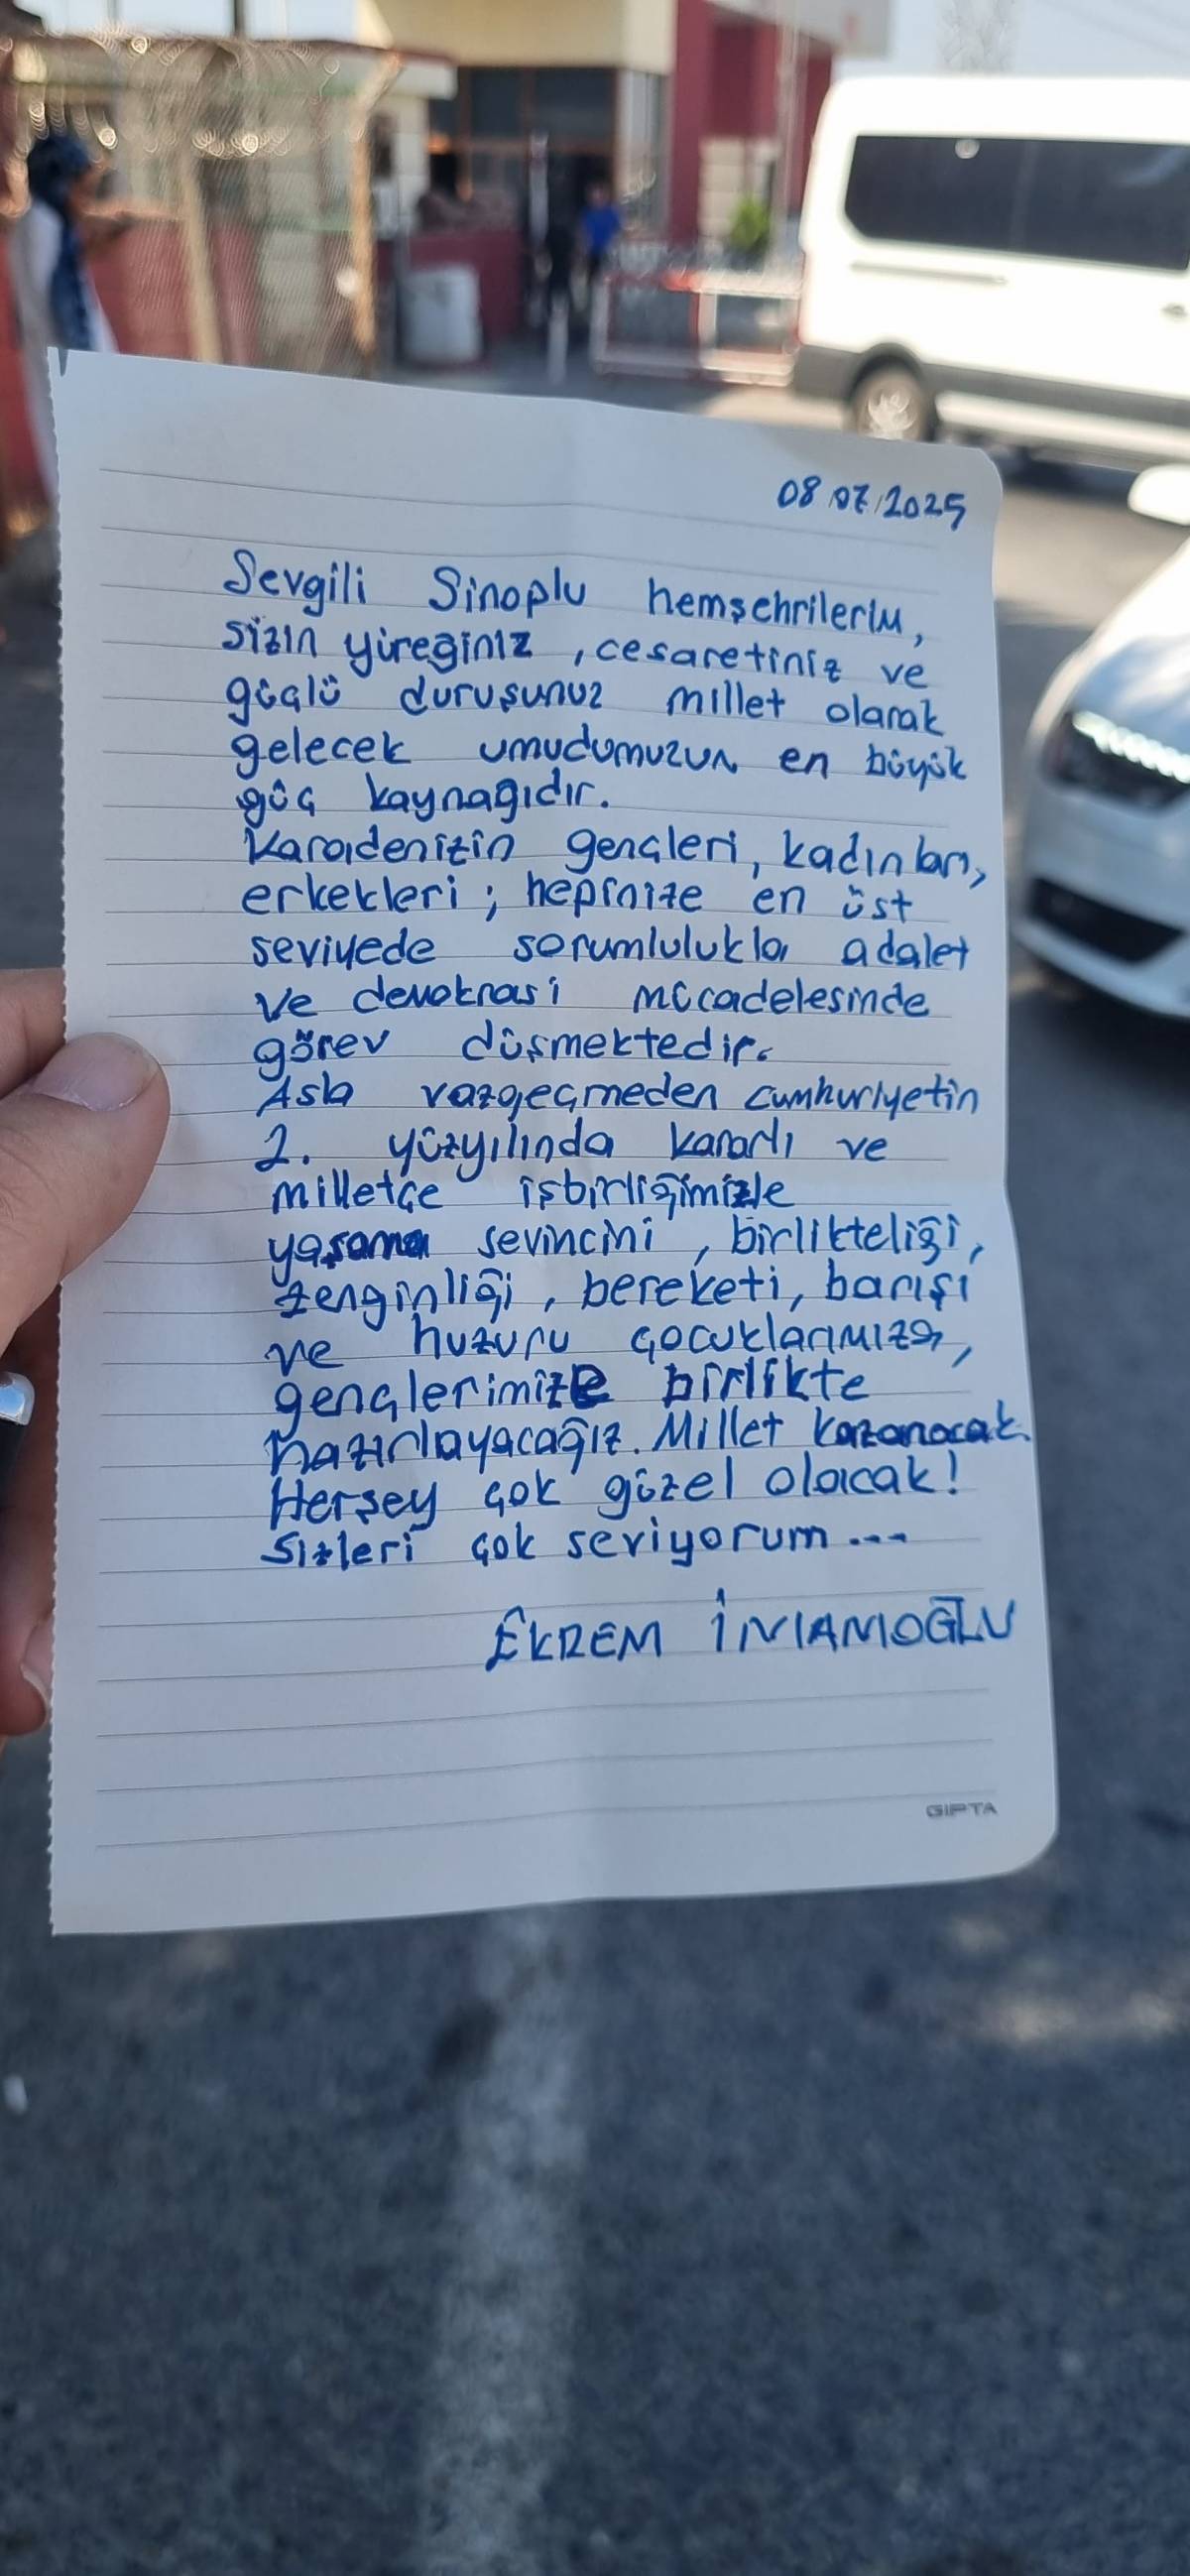 08.07.2025
Sevgili Sinoplu hemşehrilerim,
sizin yüreğiniz, cesaretiniz ve
güçlü duruşunuz millet olarak
gelecek umudumuzun en büyük
güç kaynağıdır.
Karadenizin gençleri, kadınları,
erkekleri; hepinize en üst
seviyede sorumlulukla adalet
ve demokrasi mücadelesinde
görev düşmektedir.
Asla vazgeçmeden cumhuriyetin
2. yüzyılında kararlı ve
milletçe işbirliğimizle
yaşama sevincini, birlikteliği,
zenginliği, bereketi, barışı
ve huzuru çocuklarımıza,
gençlerimize birlikte
hazırlayacağız. Millet kazanacak.
Herşey çok güzel olacak!
Sizleri çok seviyorum...
EKREM İMAMOĞLU
GIPTA